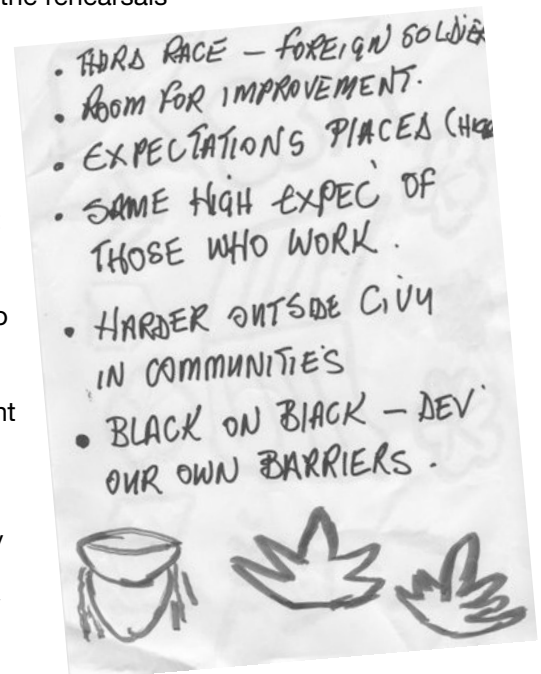 the rehearsals
• THIRD RACE – FOREIGN SOLDIE
• ROOM FOR IMPROVEMENT.
• EXPECTATIONS PLACED (HIGH
• SAME HIGH EXPEC' OF
THOSE WHO WORK.
• HARDER OUTSIDE CIVY
IN COMMUNITIES
• BLACK ON BLACK – DEV'
OUR OWN BARRIERS.